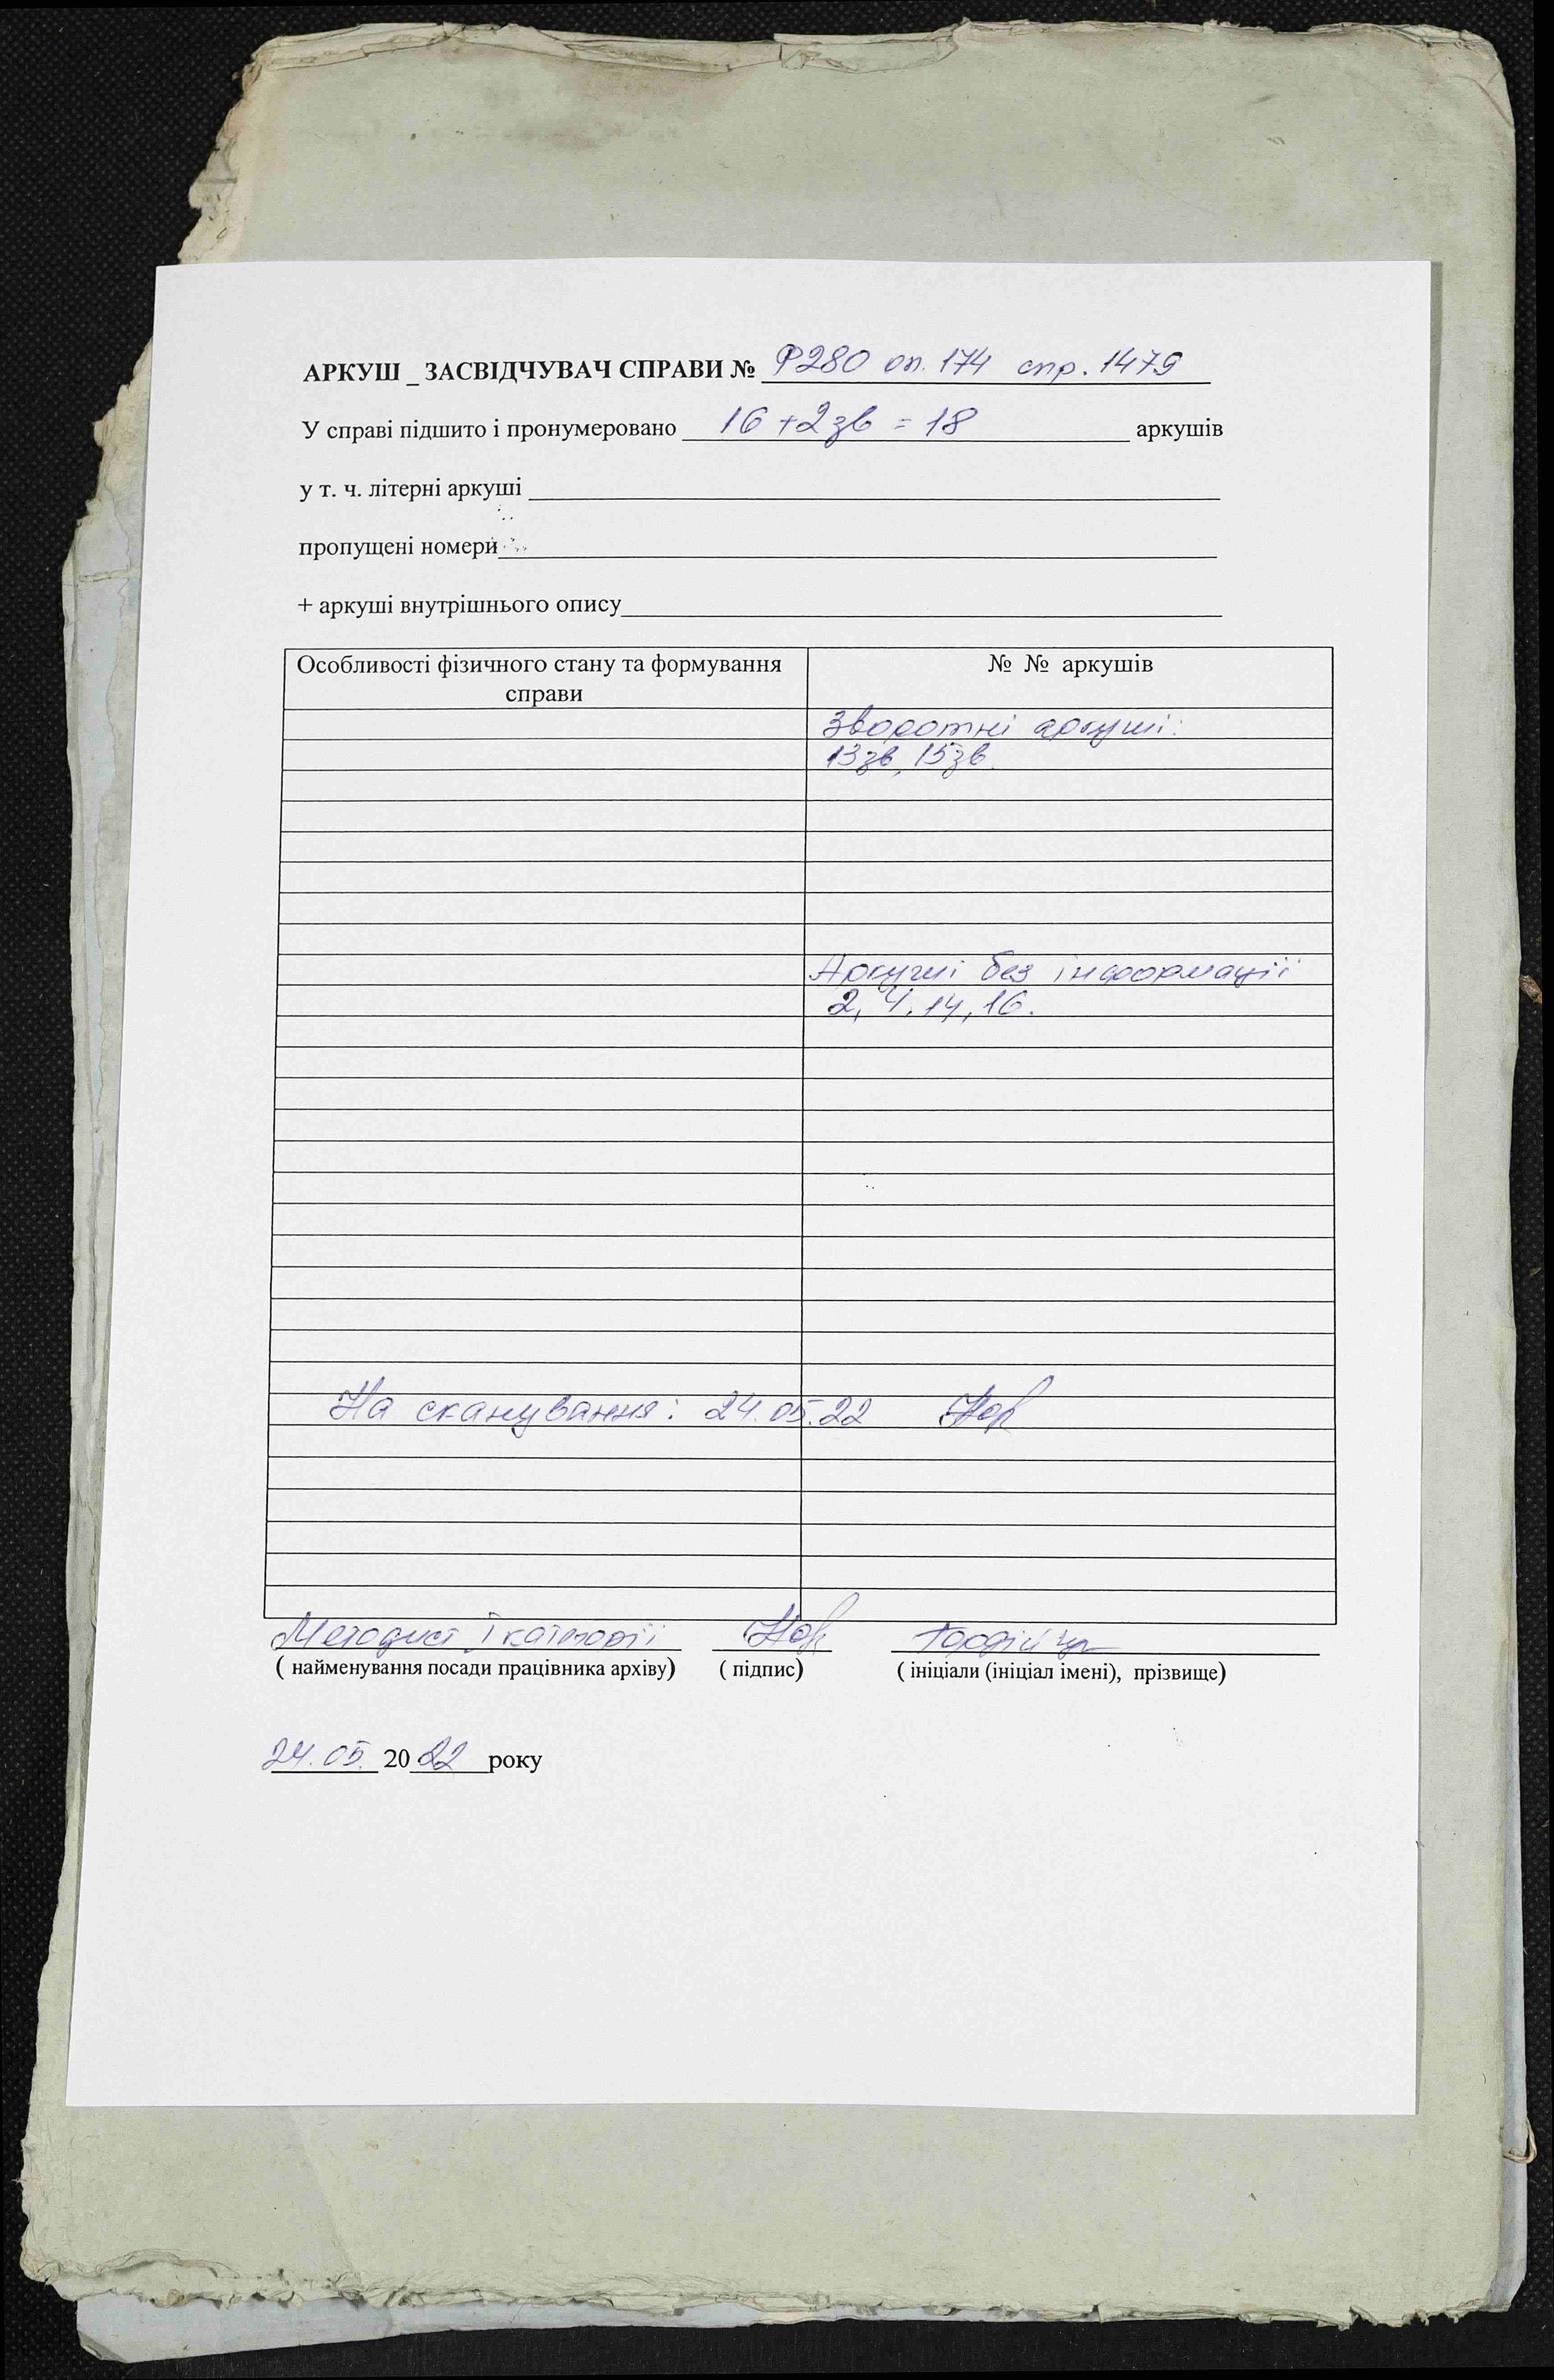 АРКУШ _ ЗАСВІДЧУВАЧ СПРАВИ № Ф280 оп. 174 спр. 1479
У справі підшито і пронумеровано 16 + 2 зв = 18 аркушів
у т. ч. літерні аркуші
пропущені номери
+ аркуші внутрішнього опису
Особливості фізичного стану та формування справи
№ № аркушів
Зворотні аркуші:
13зв, 15зв.
Аркуші без інформації
2, 4, 14, 16.
На сканування: 24.05.22
Методист І категорії
( найменування посади працівника архіву) ( підпис) ( ініціали (ініціал імені), прізвище)
24.05. 2022 року